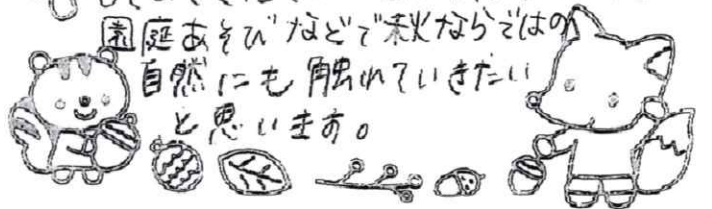 園庭あそびなどで秋ならではの
自然にも触れていきたい
と思います。